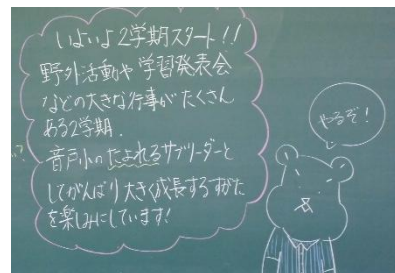 いよいよ2学期スタート!!
野外活動や学習発表会
などの大きな行事がたくさん
ある2学期.
音戸小のたよれるサブリーダーと
してがんばり大きく成長するすがた
を楽しみにしています!
やるぞ!